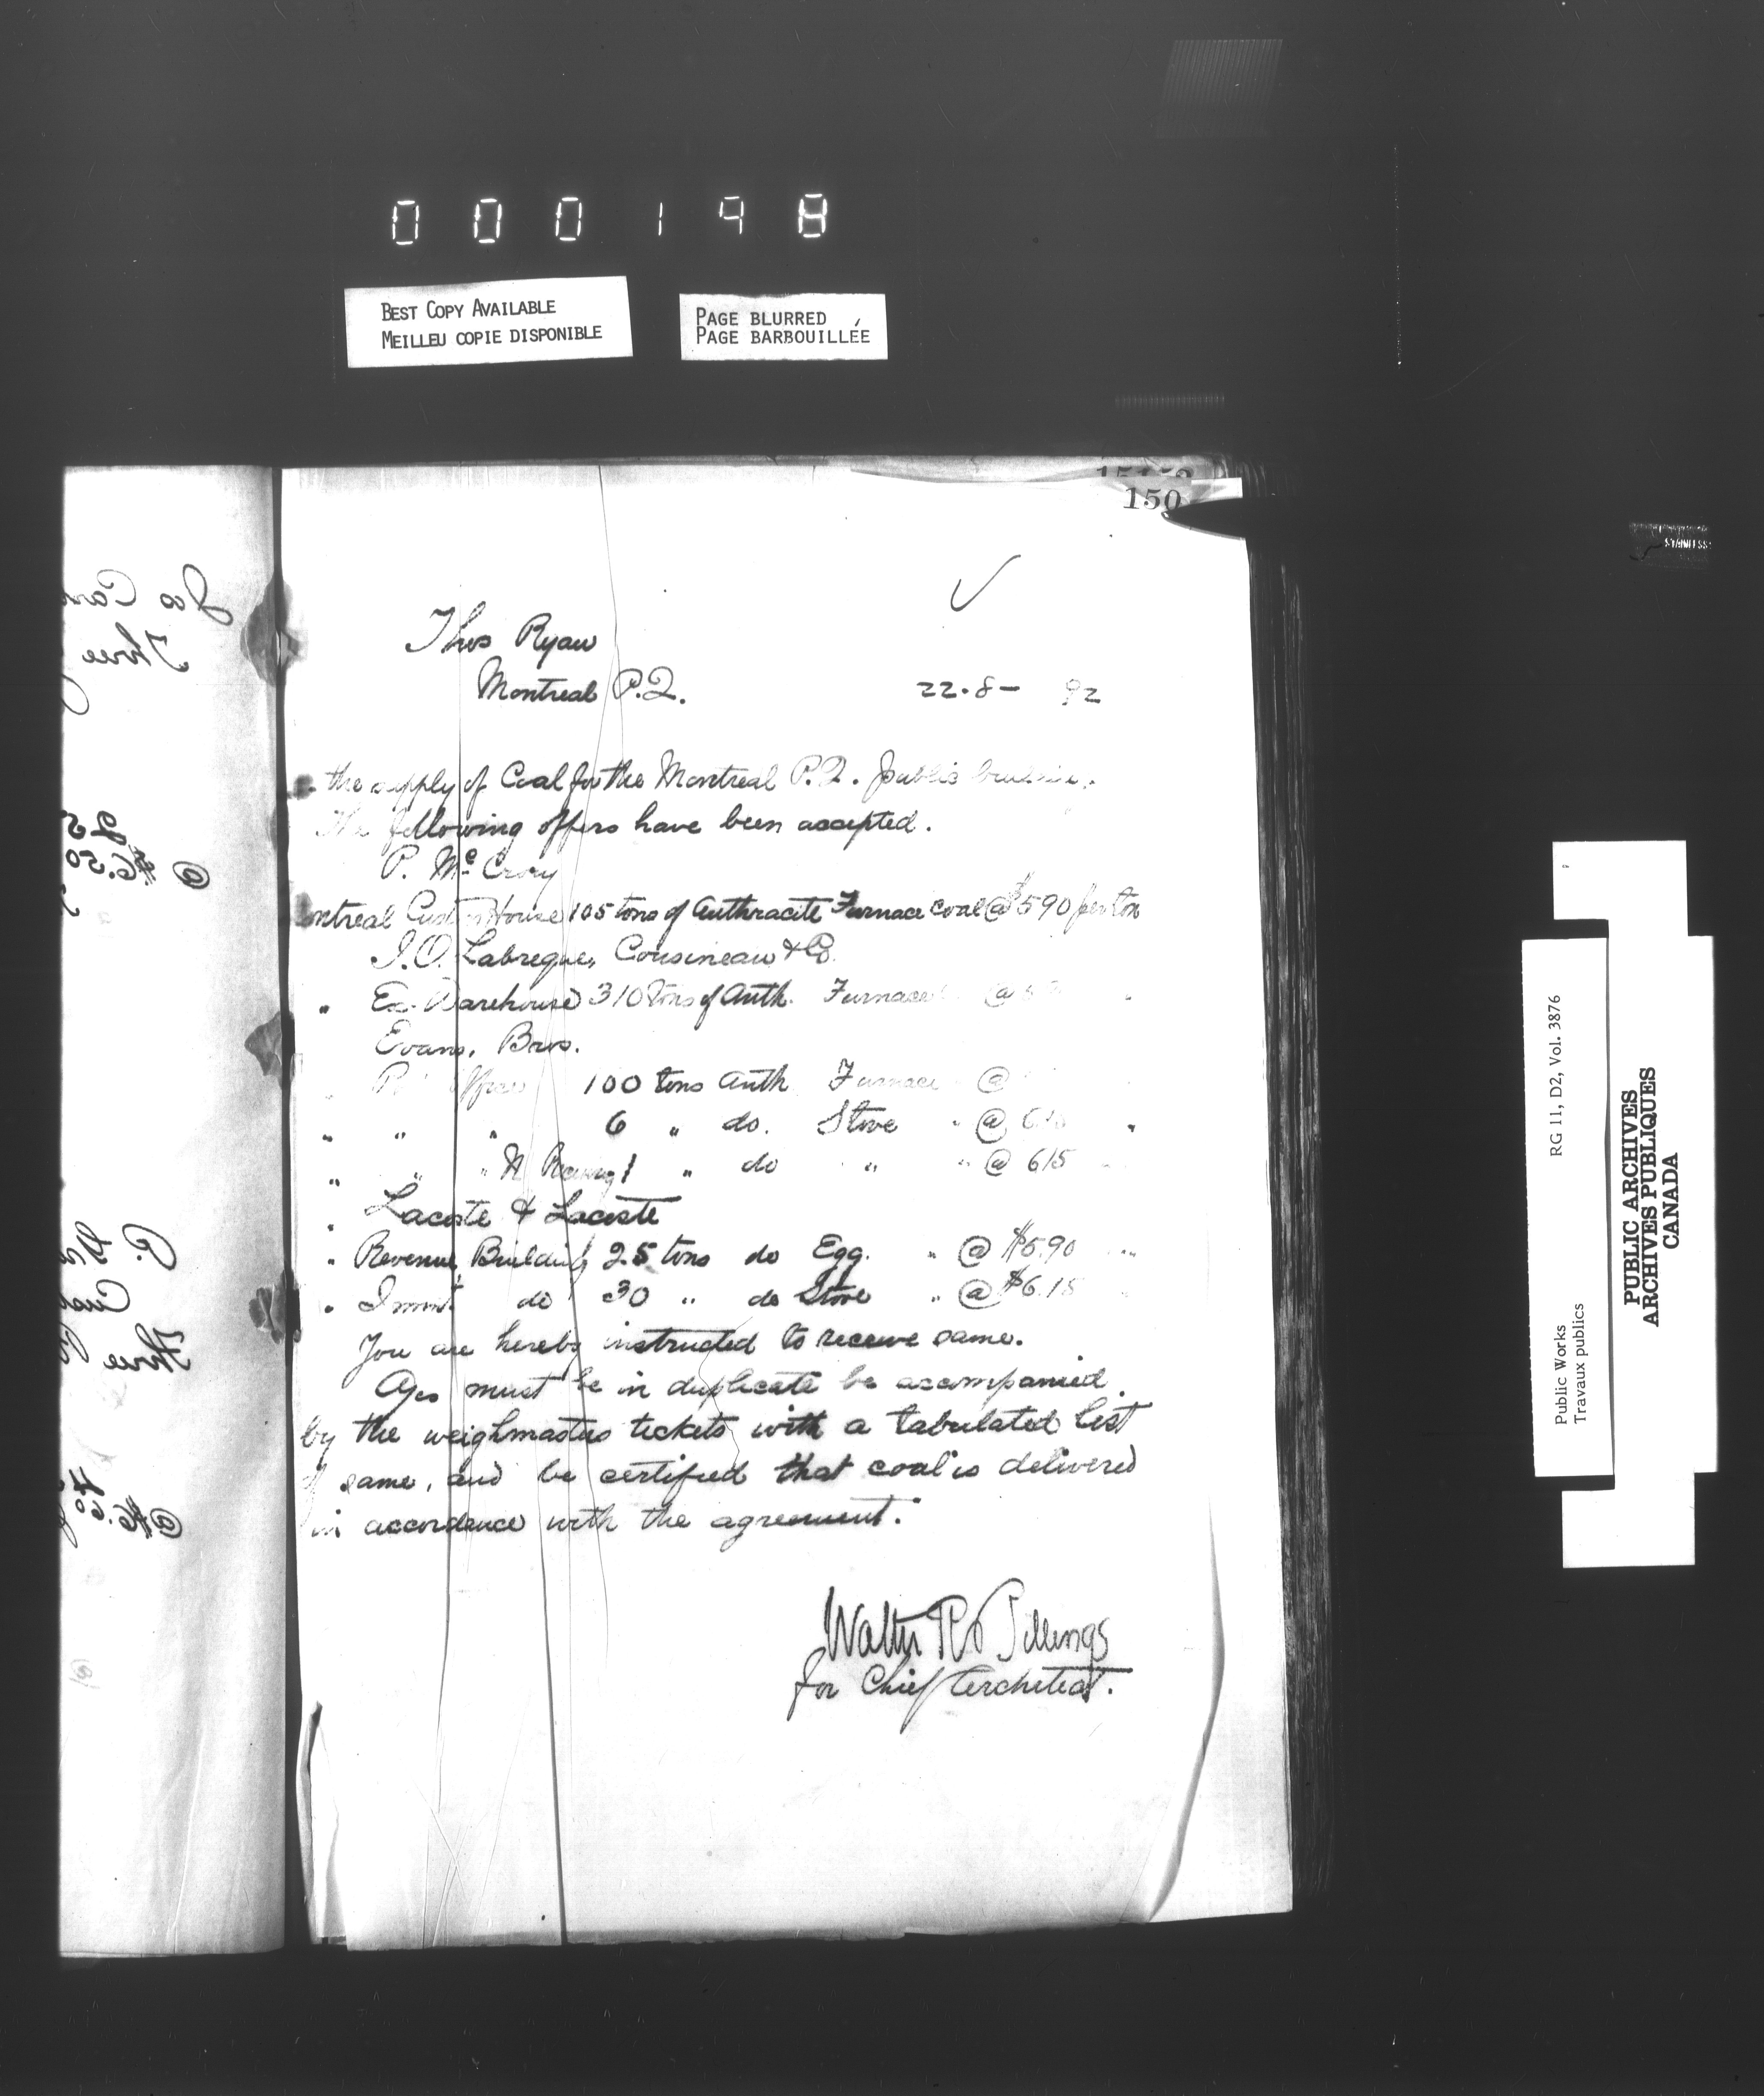 000198
BEST COPY AVAILABLE
MEILLEU COPIE DISPONIBLE
PAGE BLURRED
PAGE BARBOUILLÉE
150
Thos Ryan
Montreal P.Q. 22.8- 92
the supply of Coal for the Montreal P.Q. public
The following offers have been accepted.
P. McCrory
ntreal Custom House 105 tons of Anthracite Furnace coal @ $5 90 per ton
J.O. Labreque, Cousineau & Co.
" Ex. Warehouse 310 tons of Anth. Furnace @
Evans, Bros.
100 tons Anth Furnace @
" " " 6 " do. Stove " @ "
" " " 1 " do " " @ 615
" Lacoste & Lacoste
" Revenue Building 25 tons do Egg. " @ $5.90 "
" Immt do 30 " do Stove " @ $6.15
You are hereby instructed to receive same.
must be in duplicate be accompanied
by the weighmasters tickets with a tabulated list
of same, and be certified that coal is delivered
in accordance with the agreement.
Walter R. Billings
for Chief Architect.
RG 11, D2, Vol. 3876
Public Works
Travaux publics
PUBLIC ARCHIVES
ARCHIVES PUBLIQUES
CANADA
STAINLESS